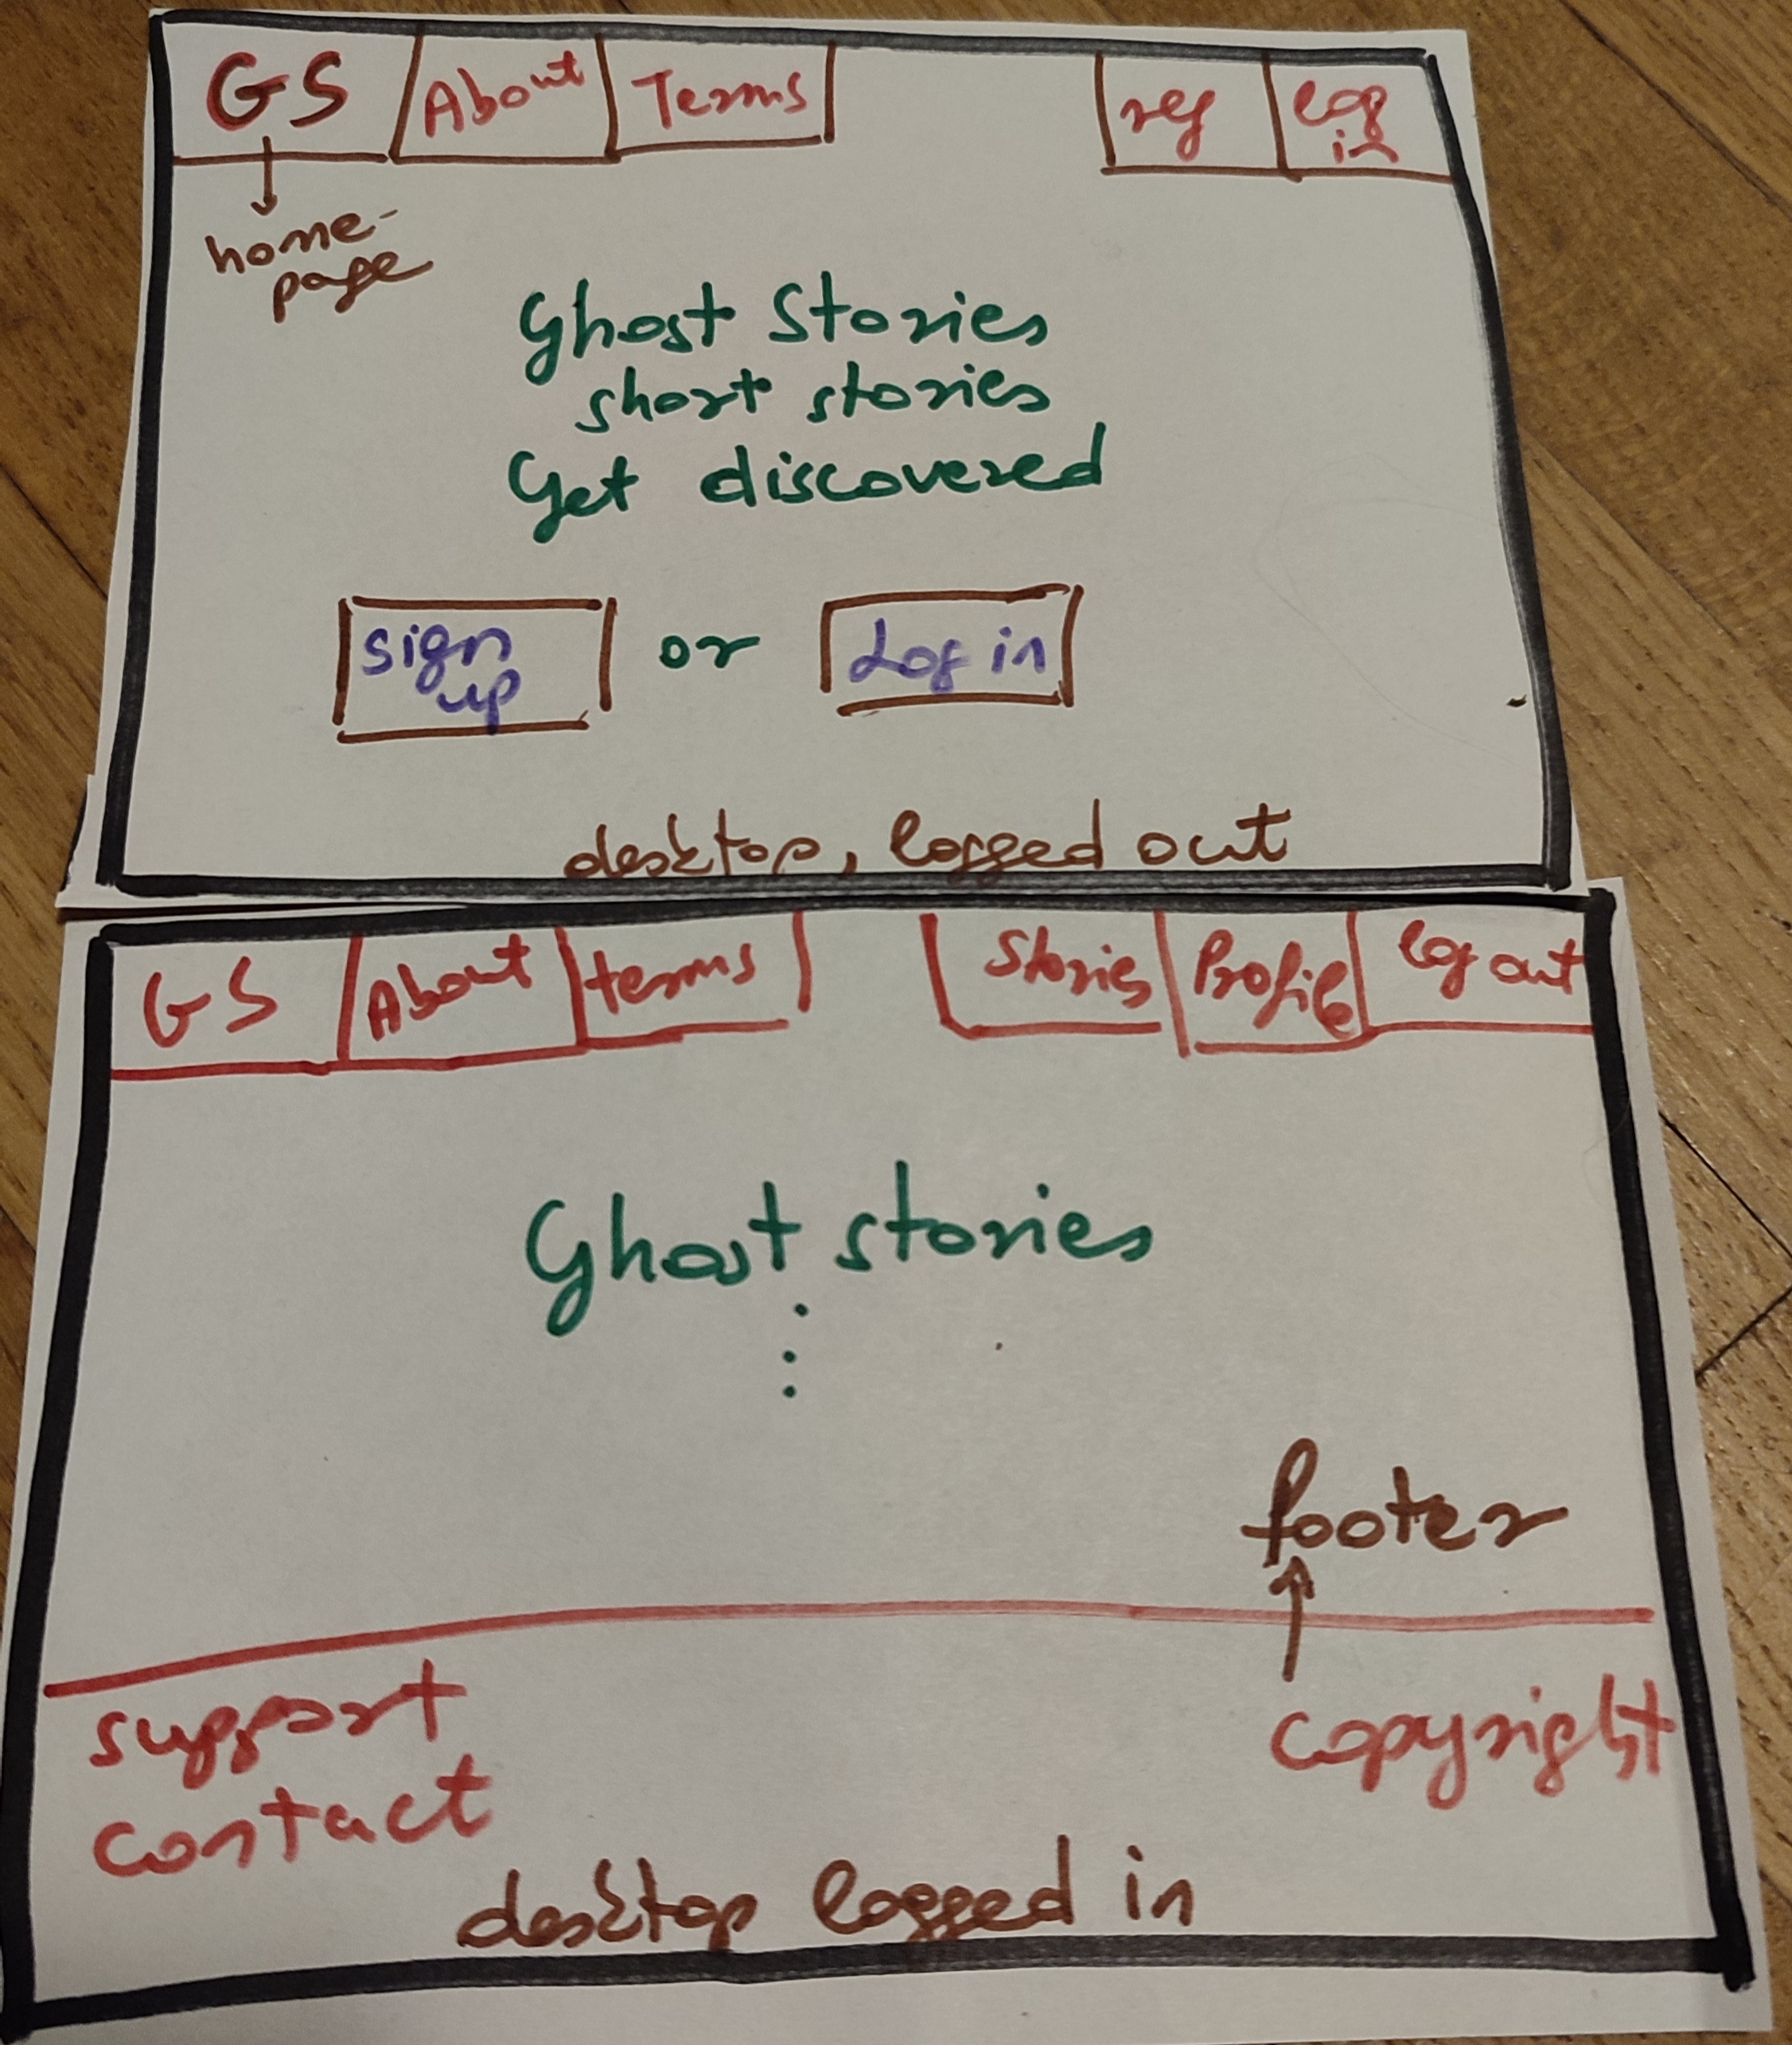 GS About Terms reg log in
home-
page
Ghost Stories
short stories
Get discovered
sign up or Log in
desktop, logged out
GS About terms Stories Profile log out
Ghost stories
footer
support
copyright
contact
desktop logged in